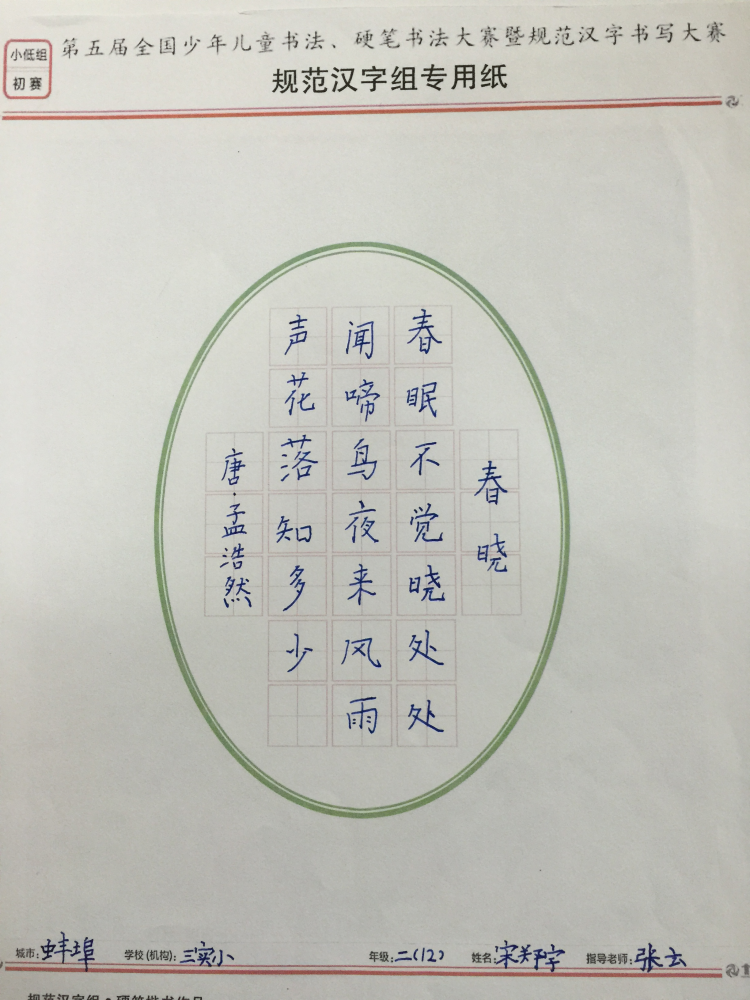 小低组
初赛
第五届全国少年儿童书法、硬笔书法大赛暨规范汉字书写大赛
规范汉字组专用纸
春晓
春眠不觉晓处处
闻啼鸟夜来风雨
声花落知多少
唐·孟浩然
城市：蚌埠 学校（机构）：三实小 年级：二（12） 姓名：宋郑宇 指导老师：张云